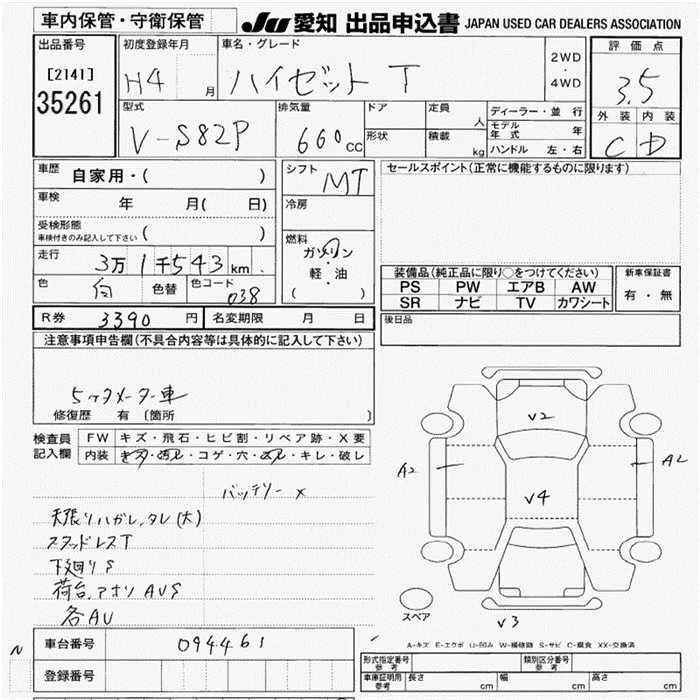 車内保管・守衛保管
JU 愛知 出品申込書 JAPAN USED CAR DEALERS ASSOCIATION
出品番号
[2141]
35261
初度登録年月
H4 月
車名・グレード
ハイゼット T
2WD
・
4WD
評価点
3.5
外装 内装
C D
型式
V-S82P
排気量
660 cc
ドア
形状
定員 人
積載 kg
ディーラー・並行
モデル年式 年
ハンドル 左・右
車歴
自家用・( )
車検 年 月( 日)
受検形態
車検付きのみ記入して下さい ( )
走行 3万1千543km
色 白 色替 色コード 038
シフト MT
冷房
燃料
ガソリン
軽・油
( )
セールスポイント(正常に機能するものに限ります)
装備品(純正品に限り○をつけてください)
PS PW エアB AW
SR ナビ TV カワシート
新車保証書
有・無
後日品
R券 3390円 名変期限 月 日
注意事項申告欄(不具合内容等は具体的に記入して下さい)
5ケタメーター車
修復歴 有 〔箇所 〕
検査員記入欄
FW キズ・飛石・ヒビ割・リペア跡・X要
内装 キズ・汚レ・コゲ・穴・スレ・キレ・破レ
バッテリー x
天張りハガレ、タレ(大)
スタッドレスT
下廻りS
荷台、アオリ AUS
各AU
V2
A2
A2
V4
V3
スペア
A-キズ E-エクボ U-凹み W-補修跡 S-サビ C-腐食 XX-交換済
N
車台番号 094461
登録番号
形式指定番号 参考
類別区分番号 参考
車庫証明用 参考 長さ cm 幅 cm 高さ cm